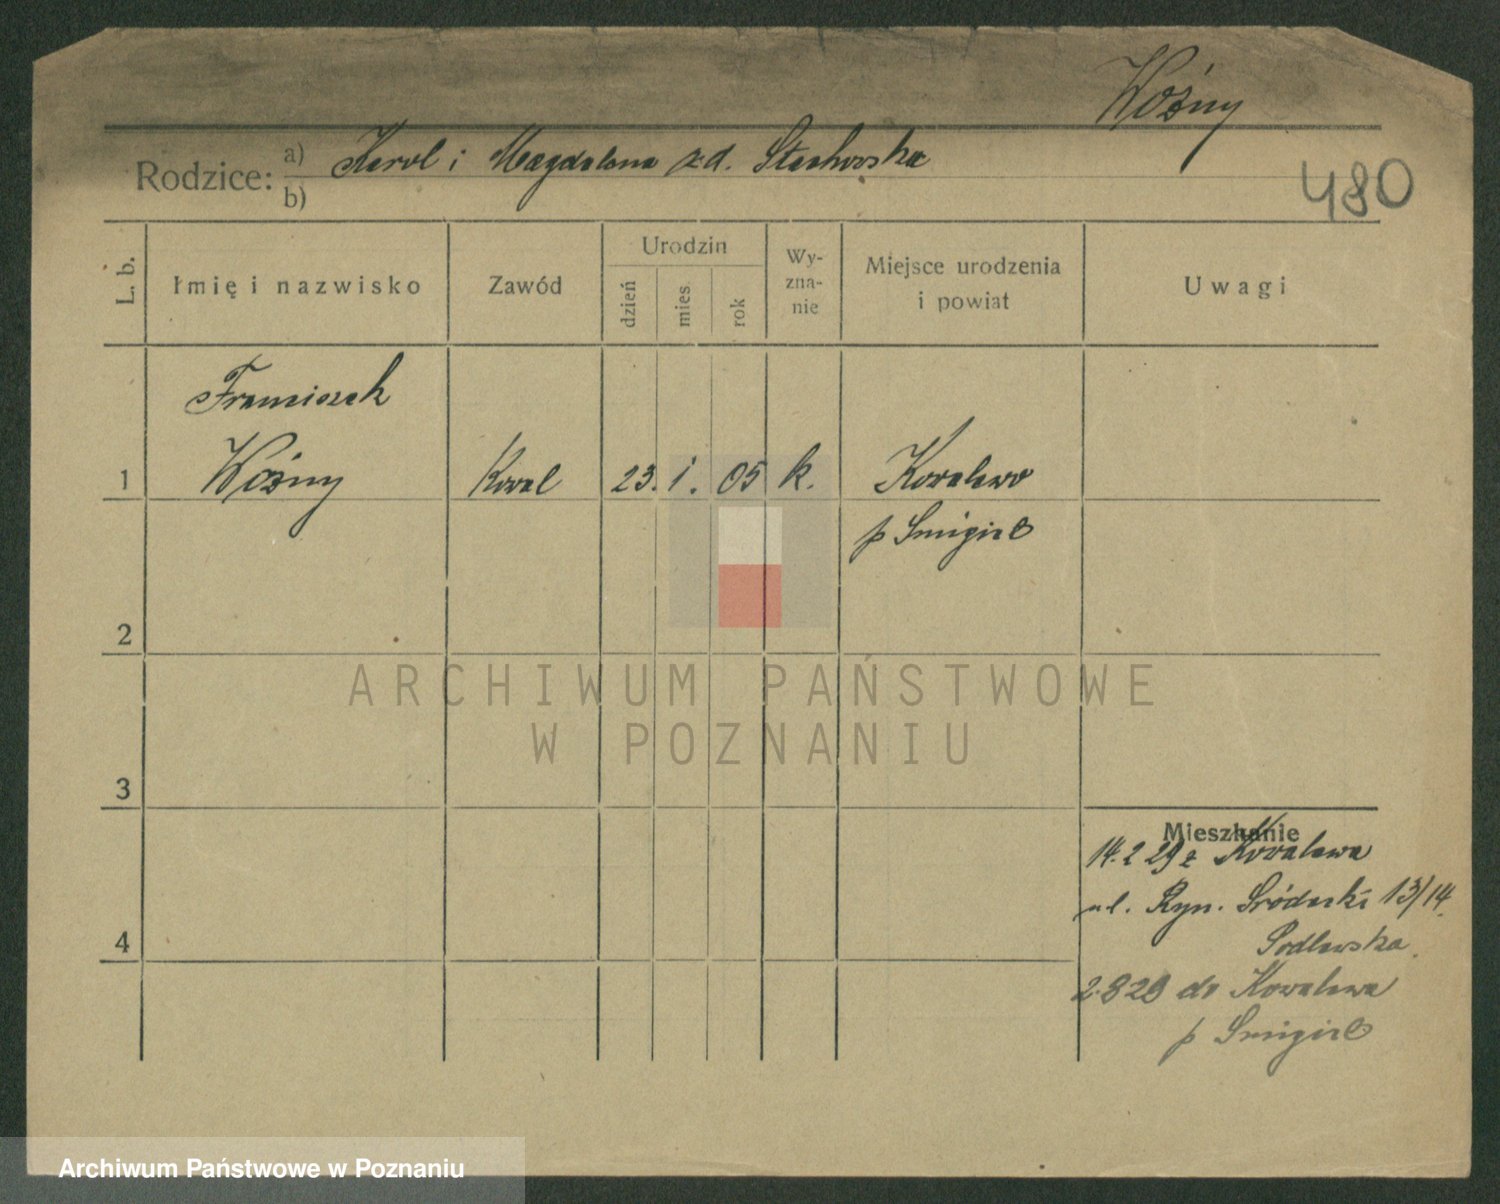 Woźny
Rodzice: a) Karol i Magdalena z d. Stachowska
b)
480
L. b.
Imię i nazwisko
Zawód
Urodzin
dzień
mies.
rok
Wy-
zna-
nie
Miejsce urodzenia
i powiat
Uwagi
Franciszek
1 Woźny Kowal 23. 1. 05 k. Kowalewo
p Śmigiel
2
3
4
Mieszkanie
14.2 29 z Kowalewa
ul. Ryn. Śródecki 13/14.
Podlewska.
2.8 29 do Kowalewa
p Śmigiel
ARCHIWUM PAŃSTWOWE
W POZNANIU
Archiwum Państwowe w Poznaniu